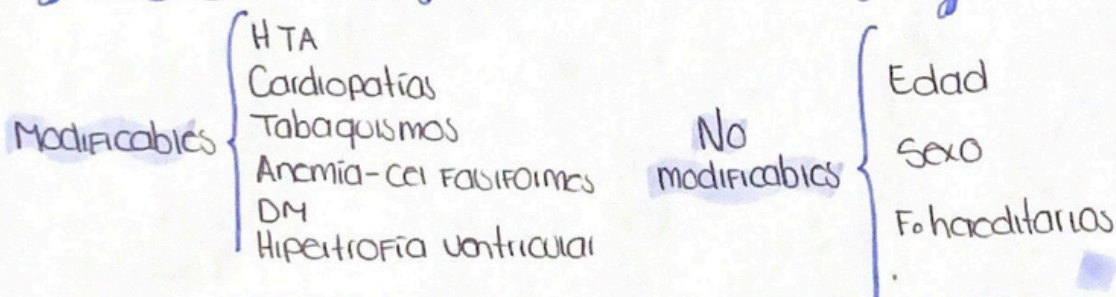 Modificables
HTA
Cardiopatías
Tabaquismos
Anemia-cel Falsiformes
DM
Hipertrofia ventricular
No
modificables
Edad
Sexo
Fo hereditarios